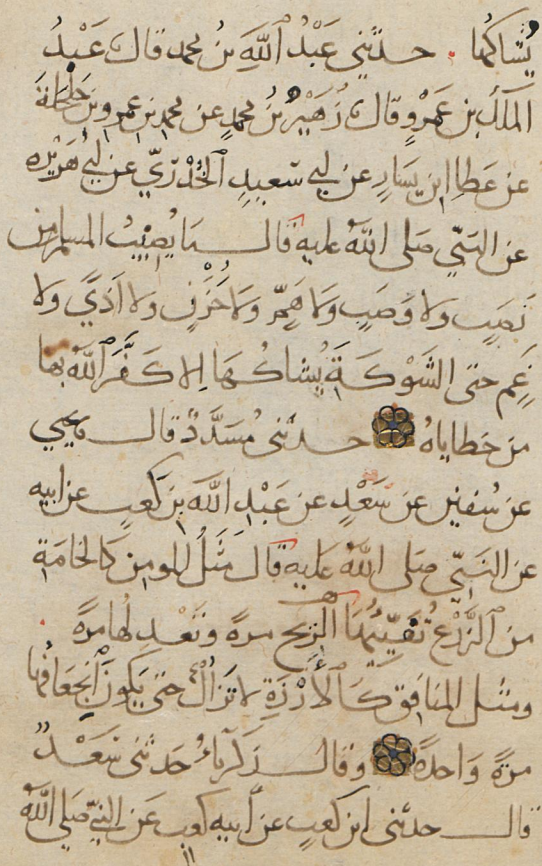 يُشَاكُهَا ۰ حدثني عَبْدُ اللهِ بنُ محمد قال عَبْدُ
الملك بن عَمْرٍو قال زُهَيْرُ بنُ محمدٍ عن محمد بن عمرو بن حَلحَلَةَ
عن عَطا ابن يَسَارٍ عن ابي سَعِيدٍ الخُدْرِيِّ عن ابي هُرَيْره
عن النبيِّ صَلى اللهُ عليه قال مَا يُصِيْبُ المسلم من
نَصَبٍ ولا وَصَبٍ ولا هَمٍّ ولا حُزْنٍ ولا اَذًى ولا
غَمٍ حتى الشَوْكَةَ يُشاكُهَا اِلا كَفَّرَ اللهُ بها
من خَطاياهُ حدثني مُسَدَّدٌ قال يحيى
عن سُفين عن سَعْدٍ عن عَبْدِ اللهِ بن كَعبٍ عن ابيه
عن النبيِّ صَلى اللهُ عليه قال مَثَلُ المومن كَالخامَةِ
من الزَّرْعِ تُفَيِّئُهَا الرِّيح مرةً وتَعْدِلُها مرةً ۰
ومثل المنافق كَالأَرْزَةِ لا تَزَالُ حتى يَكونَ انْجِعَافُها
مرةً وَاحدةً وقال زكَرِيّاءُ حَدثني سَعْدٌ
قال حدثني ابن كعبٍ عن أبيه كعب عن النبيِّ صَلى اللهُ